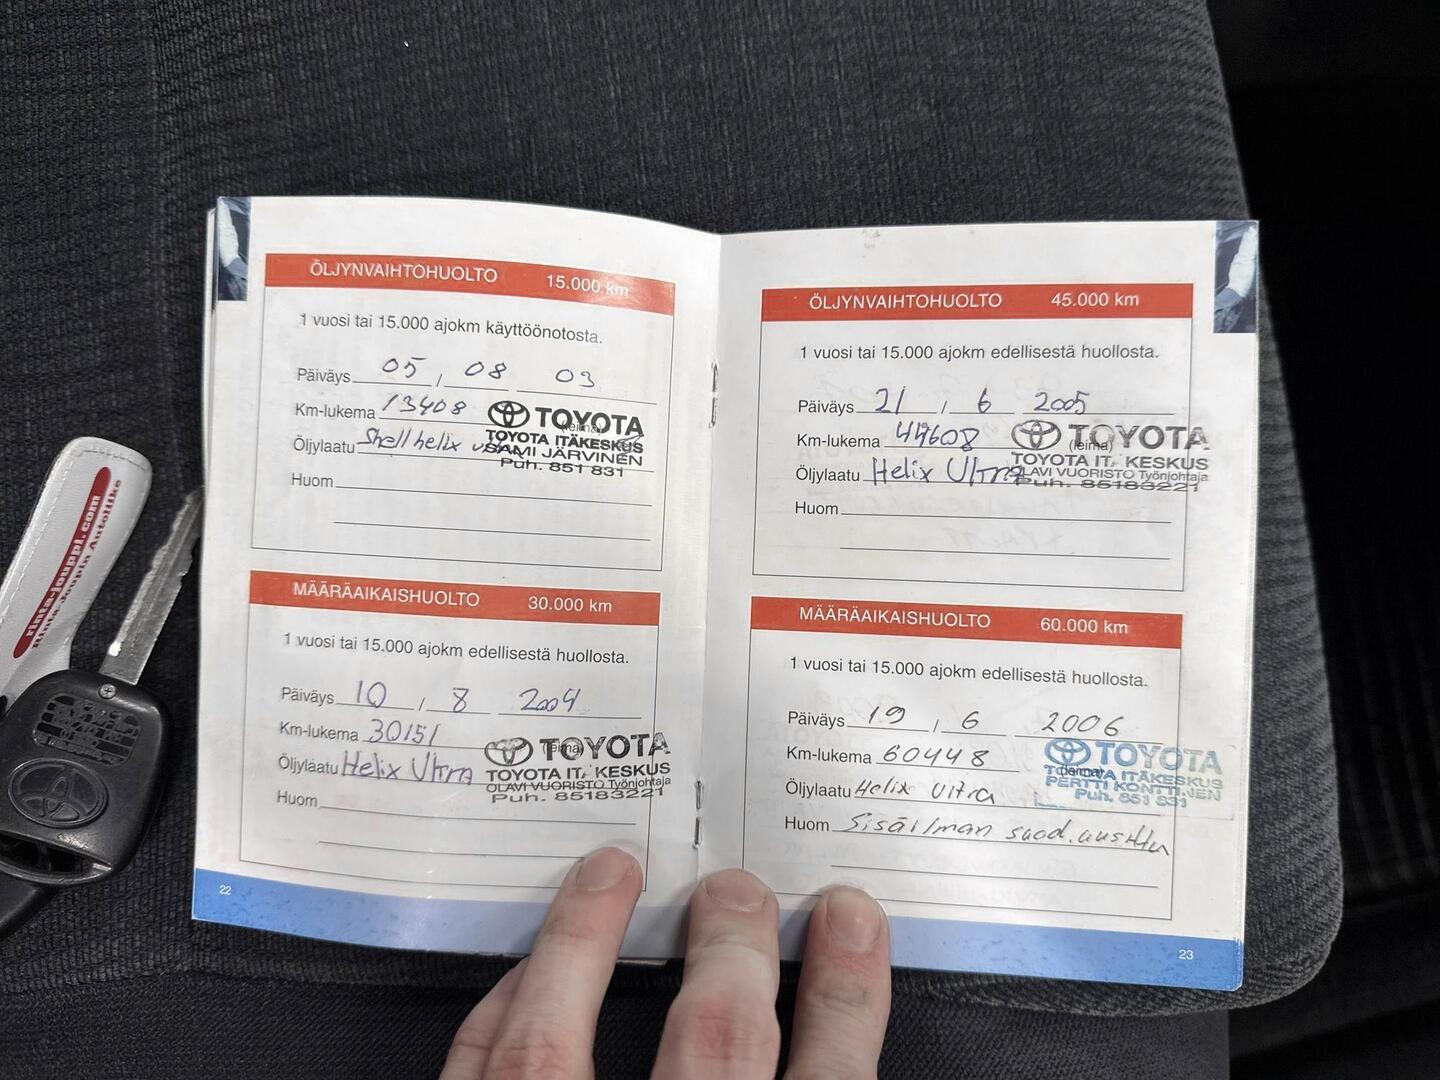 ÖLJYNVAIHTOHUOLTO 15.000 km
1 vuosi tai 15.000 ajokm käyttöönotosta.
Päiväys 05 , 08 03
Km-lukema 13408
TOYOTA
(leima)
TOYOTA ITÄKESKUS
Öljylaatu Shell helix ultra
SAMI JÄRVINEN
Puh. 851 831
Huom
MÄÄRÄAIKAISHUOLTO 30.000 km
1 vuosi tai 15.000 ajokm edellisestä huollosta.
Päiväys 10 , 8 2004
Km-lukema 30151
TOYOTA
(leima)
TOYOTA IT. KESKUS
Öljylaatu Helix Ultra
OLAVI VUORISTO Työnjohtaja
Puh. 85183221
Huom
22
ÖLJYNVAIHTOHUOLTO 45.000 km
1 vuosi tai 15.000 ajokm edellisestä huollosta.
Päiväys 21 , 6 2005
Km-lukema 44608
TOYOTA
(leima)
TOYOTA IT. KESKUS
Öljylaatu Helix Ultra
OLAVI VUORISTO Työnjohtaja
Puh. 85183221
Huom
MÄÄRÄAIKAISHUOLTO 60.000 km
1 vuosi tai 15.000 ajokm edellisestä huollosta.
Päiväys 19 , 6 2006
Km-lukema 60448
TOYOTA
(leima)
TOYOTA ITÄKESKUS
PERTTI KONTTINEN
Öljylaatu Helix Ultra
Puh. 851 831
Huom Sisäilman suod. uusittu
23
rinta-jouppi.com
Rinta-Joupin Autoliike